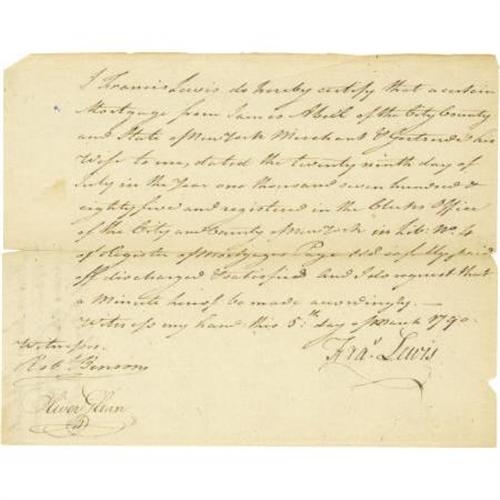 I Francis Lewis do hereby certify that a certain
Mortgage from James Abeel of the City County
and State of New York Merchant & Gertrude his
Wife to me, dated the twenty ninth day of
July in the Year one thousand seven hundred &
eighty five and registered in the Clerks Office
of the City and County of New York in Lib: No. 4
of Register of Mortgages Page is fully paid
off discharged & satisfied And I do request that
a Minute hereof be made accordingly. —
Witness my hand this 5th day of March 1790.
Witness.
Fras. Lewis
Robt. Benson
Oliver Glean